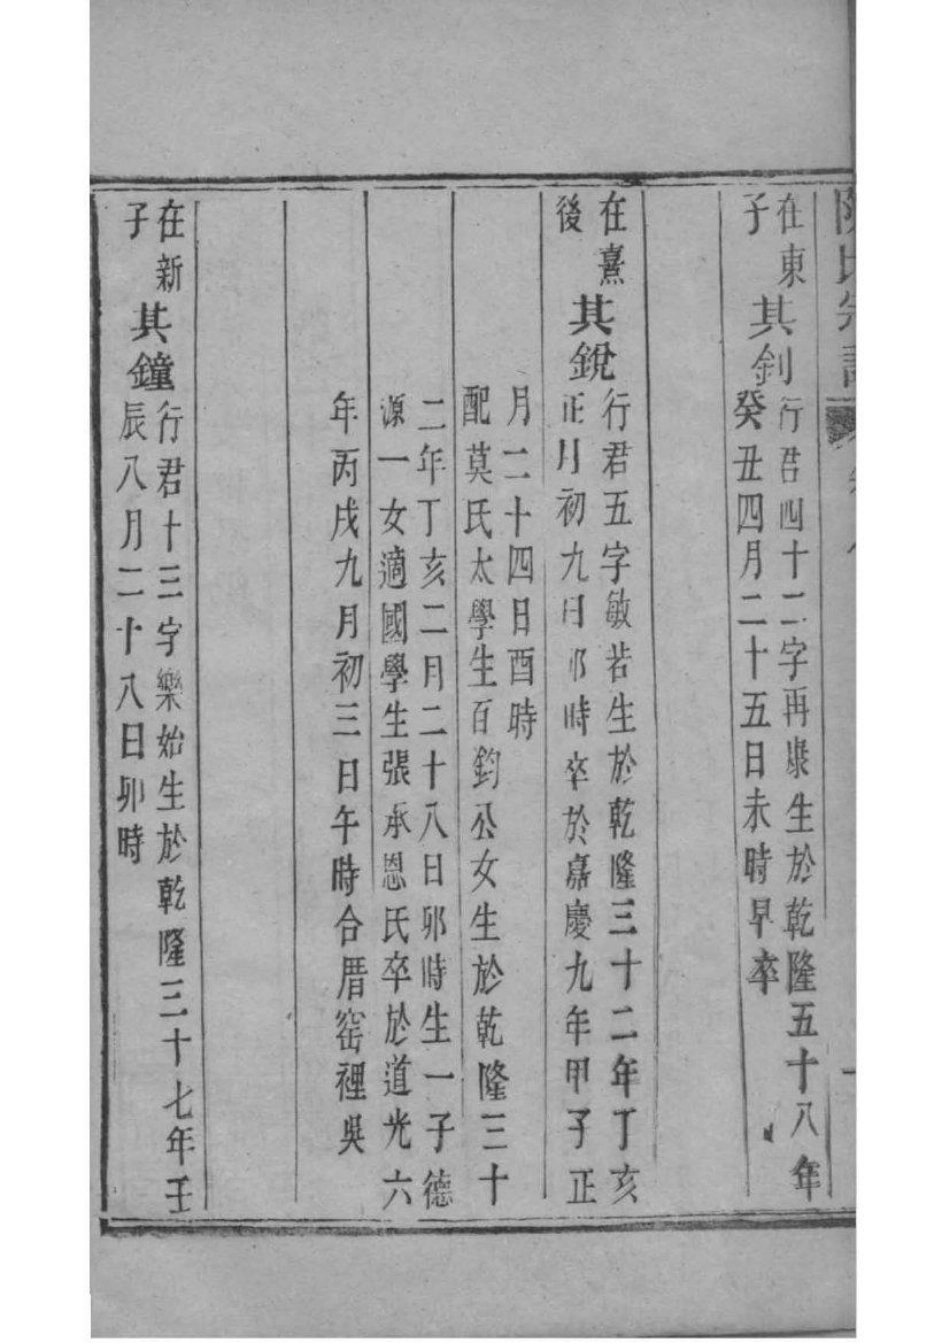 在東
子
其釗
行君四十二字再康生於乾隆五十八年
癸丑四月二十五日未時早卒
在熹
後
其銳
行君五字敏若生於乾隆三十二年丁亥
正月初九日卯時卒於嘉慶九年甲子正
月二十四日酉時
配莫氏太學生百鈞公女生於乾隆三十
二年丁亥二月二十八日卯時生一子德
源一女適國學生張承恩氏卒於道光六
年丙戌九月初三日午時合厝窑裡吳
在新
子
其鐘
行君十三字樂始生於乾隆三十七年壬
辰八月二十八日卯時